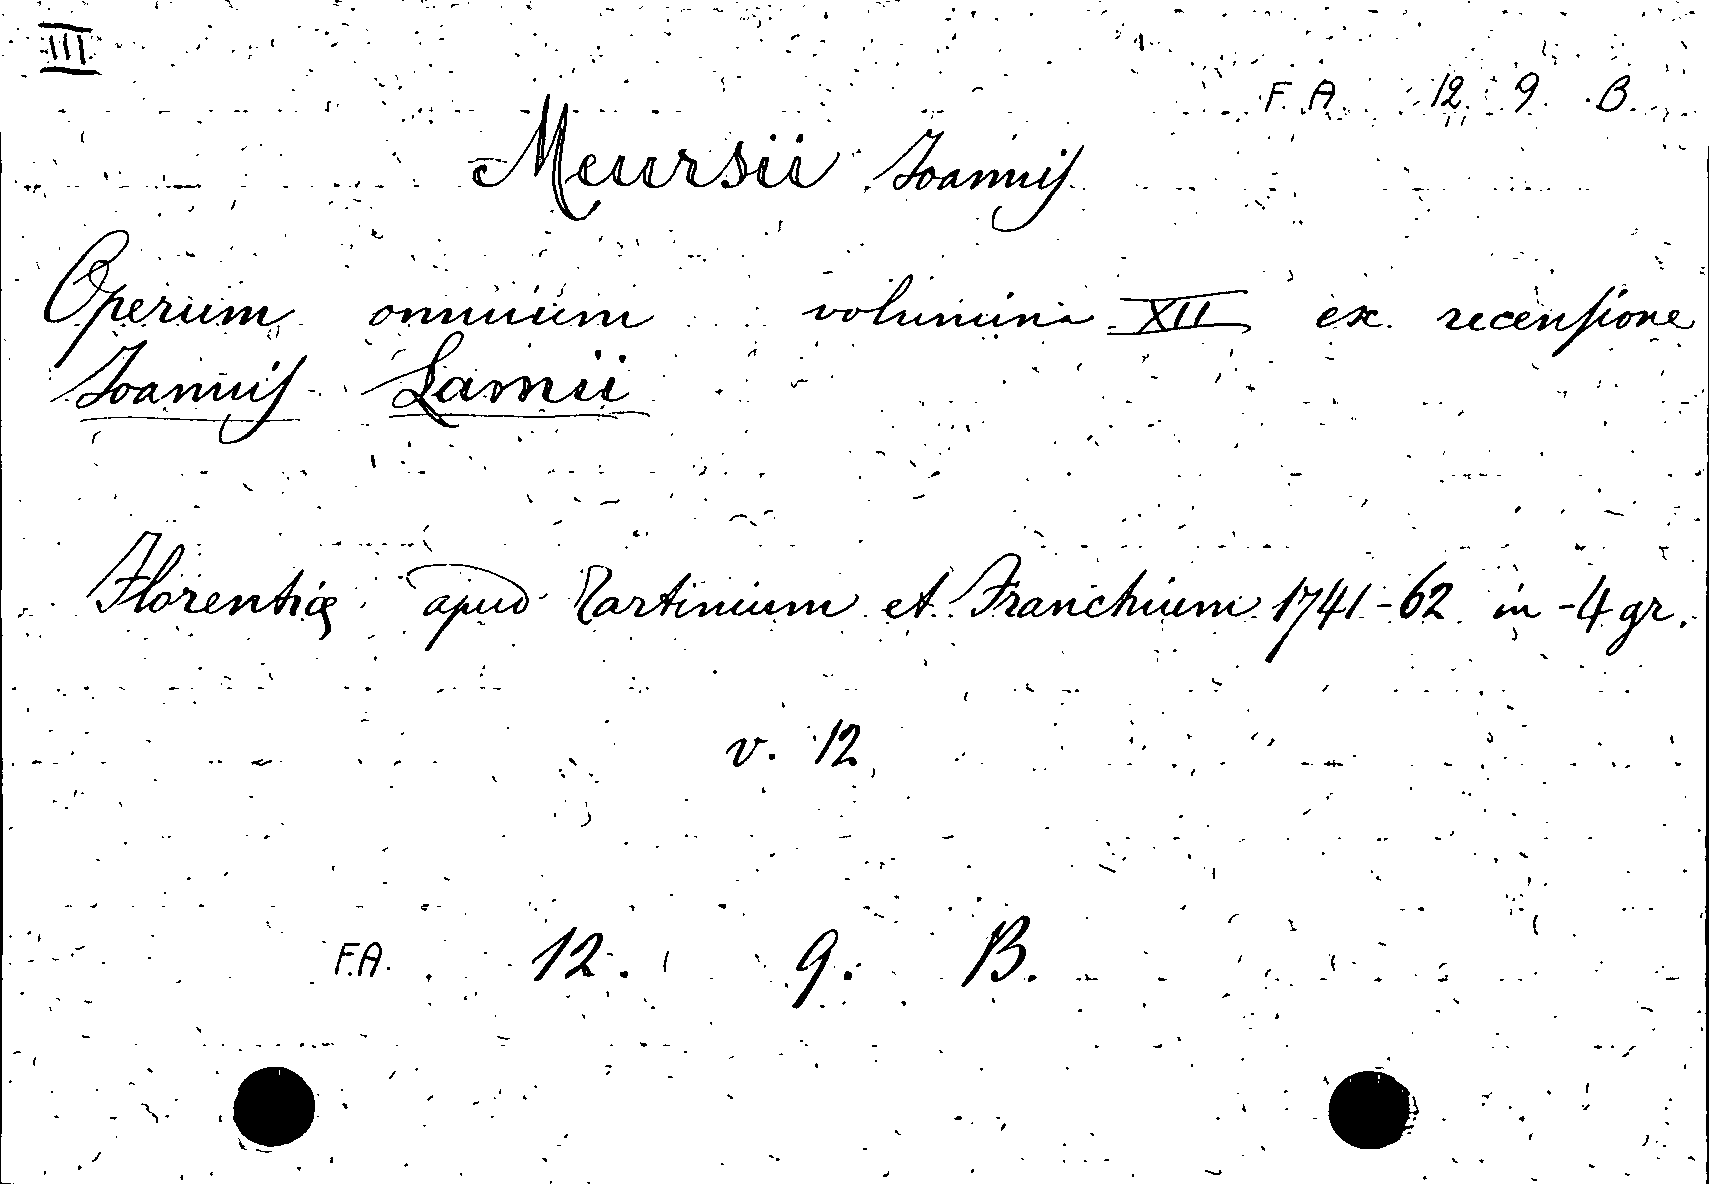 III
F. A. 12. 9. B.
Meursii Joannis
Operum omnium volumina XII ex recensione
Joannis Lamii
Florentiæ apud Tartinium et Franchium 1741-62 in -4 gr.
v. 12
F.A. 12. 9. B.